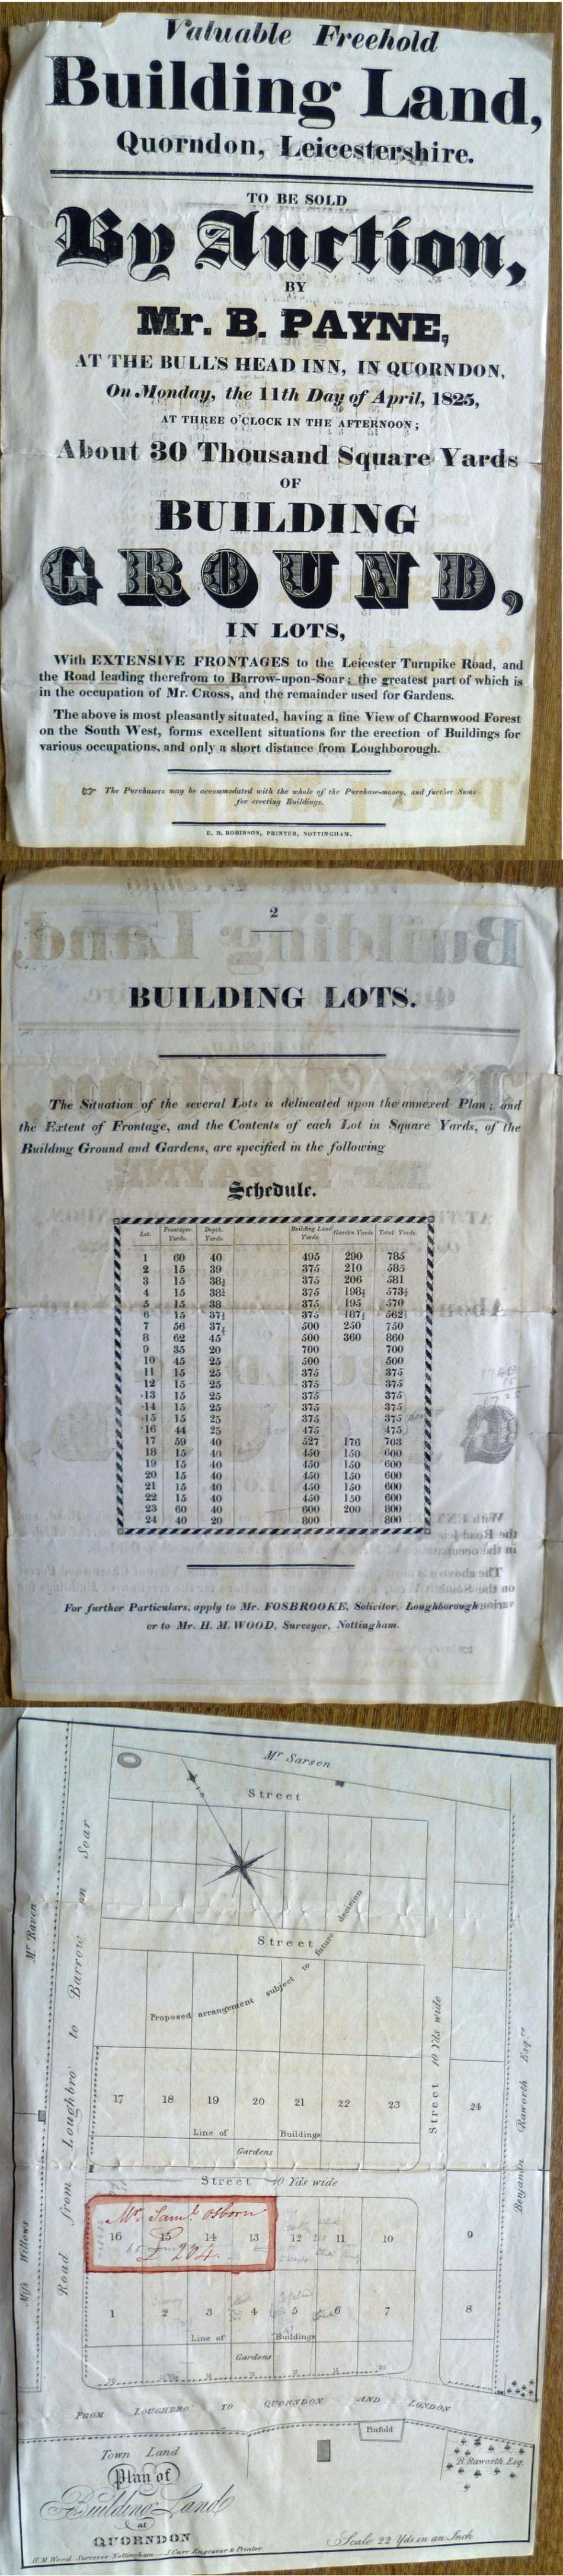 Valuable Freehold
Building Land,
Quorndon, Leicestershire.
TO BE SOLD
By Auction,
BY
Mr. B. PAYNE,
AT THE BULL'S HEAD INN, IN QUORNDON,
On Monday, the 11th Day of April, 1825,
AT THREE O'CLOCK IN THE AFTERNOON;
About 30 Thousand Square Yards
OF
BUILDING
GROUND,
IN LOTS,
With EXTENSIVE FRONTAGES to the Leicester Turnpike Road, and
the Road leading therefrom to Barrow-upon-Soar; the greatest part of which is
in the occupation of Mr. CROSS, and the remainder used for Gardens.
The above is most pleasantly situated, having a fine View of Charnwood Forest
on the South West, forms excellent situations for the erection of Buildings for
various occupations, and only a short distance from Loughborough.
The Purchasers may be accommodated with the whole of the Purchase-money, and further Sums
for erecting Buildings.
E. B. ROBINSON, PRINTER, NOTTINGHAM.
2
BUILDING LOTS.
The Situation of the several Lots is delineated upon the annexed Plan; and
the Extent of Frontage, and the Contents of each Lot in Square Yards, of the
Building Ground and Gardens, are specified in the following
Schedule.
Lot. Frontages. Yards. Depth. Yards. Building Land Yards. Garden Yards Total Yards.
1 60 40 495 290 785
2 15 39 375 210 585
3 15 38½ 375 206 581
4 15 38¼ 375 198½ 573½
5 15 38 375 195 570
6 15 37½ 375 187½ 562½
7 56 37½ 500 250 750
8 62 45 500 360 860
9 35 20 700 700
10 45 25 500 500
11 15 25 375 375
12 15 25 375 375
13 15 25 375 375
14 15 25 375 375
15 15 25 375 375
16 44 25 475 475
17 59 40 527 176 703
18 15 40 450 150 600
19 15 40 450 150 600
20 15 40 450 150 600
21 15 40 450 150 600
22 15 40 450 150 600
23 60 40 600 200 800
24 40 20 800 800
For further Particulars, apply to Mr. FOSBROOKE, Solicitor, Loughborough;
or to Mr. H. M. WOOD, Surveyor, Nottingham.
Mr Sarson
Street
Mr Raven
Road from Loughbro' to Barrow on Soar
Street
Proposed arrangement subject to future decision
Street 10 Yds wide
Benjamin Raworth Esqre
17 18 19 20 21 22 23 24
Line of Buildings
Gardens
Street 10 Yds wide
Miss Willows
Mr Saml Osborn
16 15 14 13 12 11 10 9
£ 204.
1 2 3 4 5 6 7 8
Line of Buildings
Gardens
FROM LOUGHBRO' TO QUORNDON AND LONDON
Pinfold
Town Land
B. Raworth Esq.
Plan of
Building Land
at
QUORNDON
Scale 22 Yds in an Inch
H.M Wood Surveyor Nottingham — J Carr Engraver & Printer